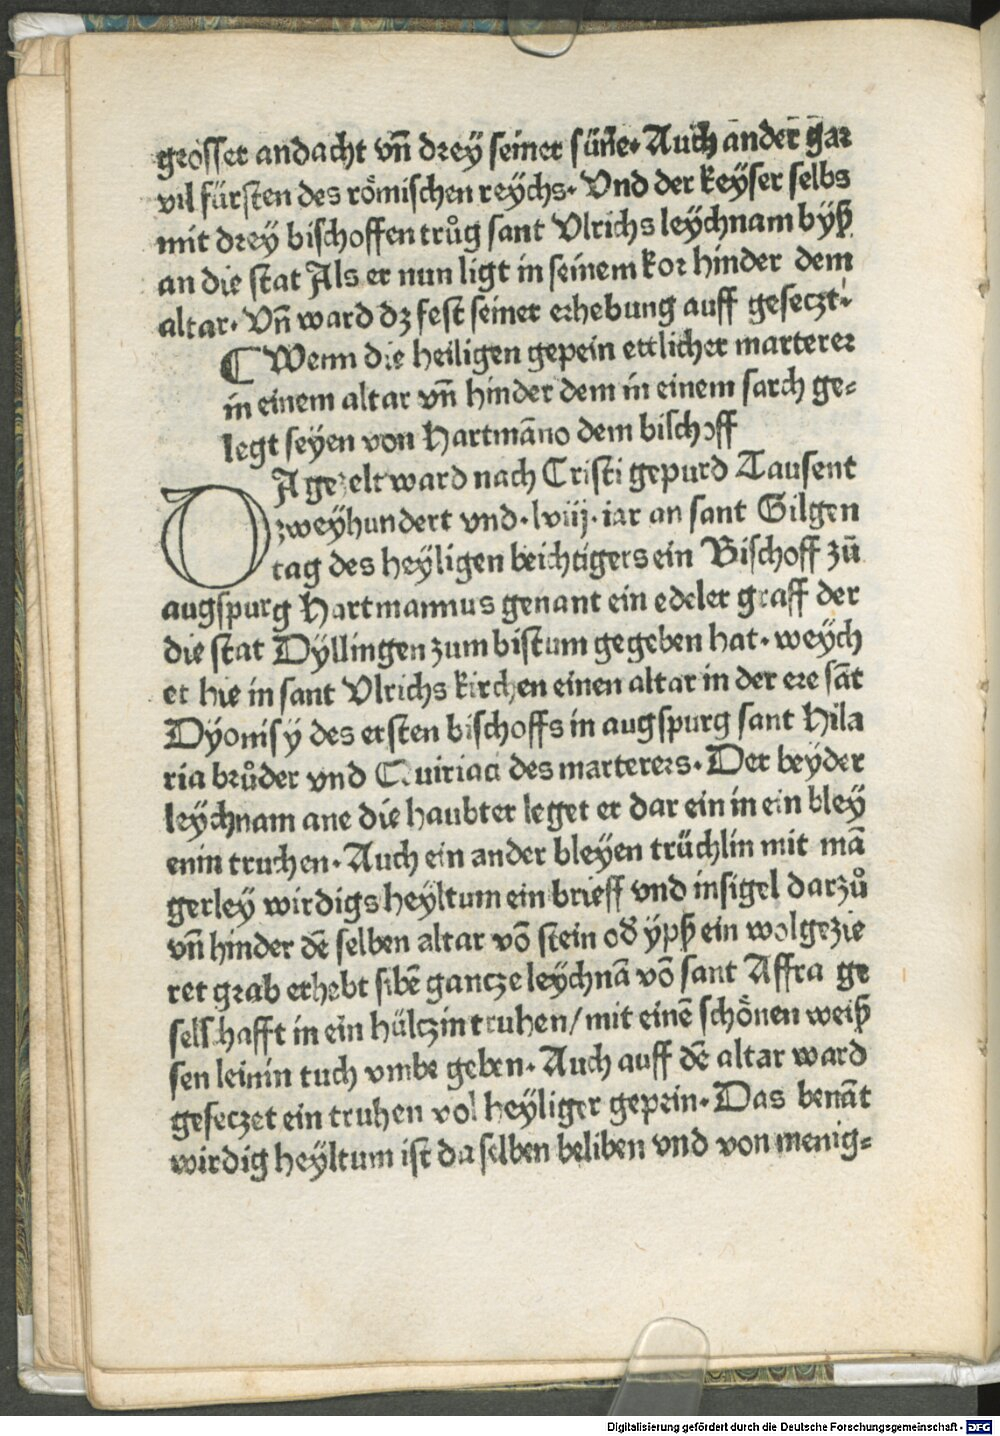 grosser andacht vn̄ drey seiner süne. Auch ander gar
vil fürsten des roͤmischen reychs. Vnd der keyser selbs
mit drey bischoffen truͦg sant Vlrichs leychnam byß
an die stat Als er nun ligt in seinem kor hinder dem
altar. Vn̄ ward dz fest seiner erhebung auff geseczt.
¶ Wenn die heiligen gepein ettlicher marterer
in einem altar vn̄ hinder dem in einem sarch ge=
legt seyen von Hartmāno dem bischoff
DA gezelt ward nach Cristi gepurd Tausent
zweyhundert vnd. lviij. iar an sant Gilgen
tag des heyligen beichtigers ein Bischoff zū
augspurg Hartmannus genant ein edeler graff der
die stat Dyllingen zum bistum gegeben hat. weych
et hie in sant Vlrichs kirchen einen altar in der ere sāt
Dyonisy des ersten bischoffs in augspurg sant Hila
ria bruͦder vnd Quiriaci des marterers. Der beyder
leychnam ane die haubter leget er dar ein in ein bley
enin truhen. Auch ein ander bleyen trüchlin mit mā
gerley wirdigs heyltum ein brieff vnd insigel darzuͦ
vn̄ hinder dē selben altar vō stein oď ypß ein wolgezie
ret grab erhebt sibē gancze leychnā vō sant Affra ge
selschafft in ein hülczin truhen/ mit einē schoͤnen weiß
sen leinin tuch vmbe geben. Auch auff dē altar ward
geseczet ein truhen vol heyliger gepein. Das benāt
wirdig heyltum ist da selben beliben vnd von menig=
Digitalisierung gefördert durch die Deutsche Forschungsgemeinschaft - DFG